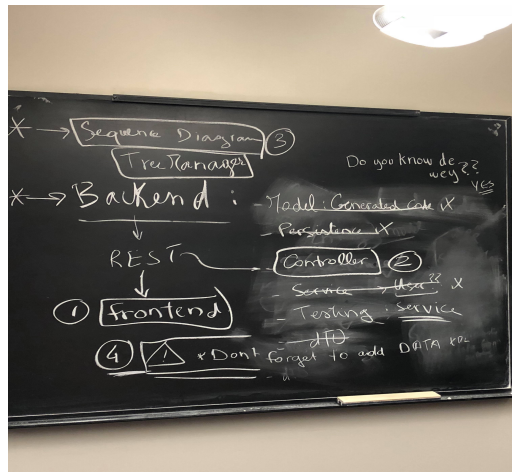 * → Sequence Diagram ③
TreeManager
Do you know de
wey??
YES
* → Backend :
- Model : Generated Code X
- Persistence X
REST
- Controller ②
- Service → User?? X
① Frontend
- Testing : Service
- dTO
④ ! * Dont forget to add DATA